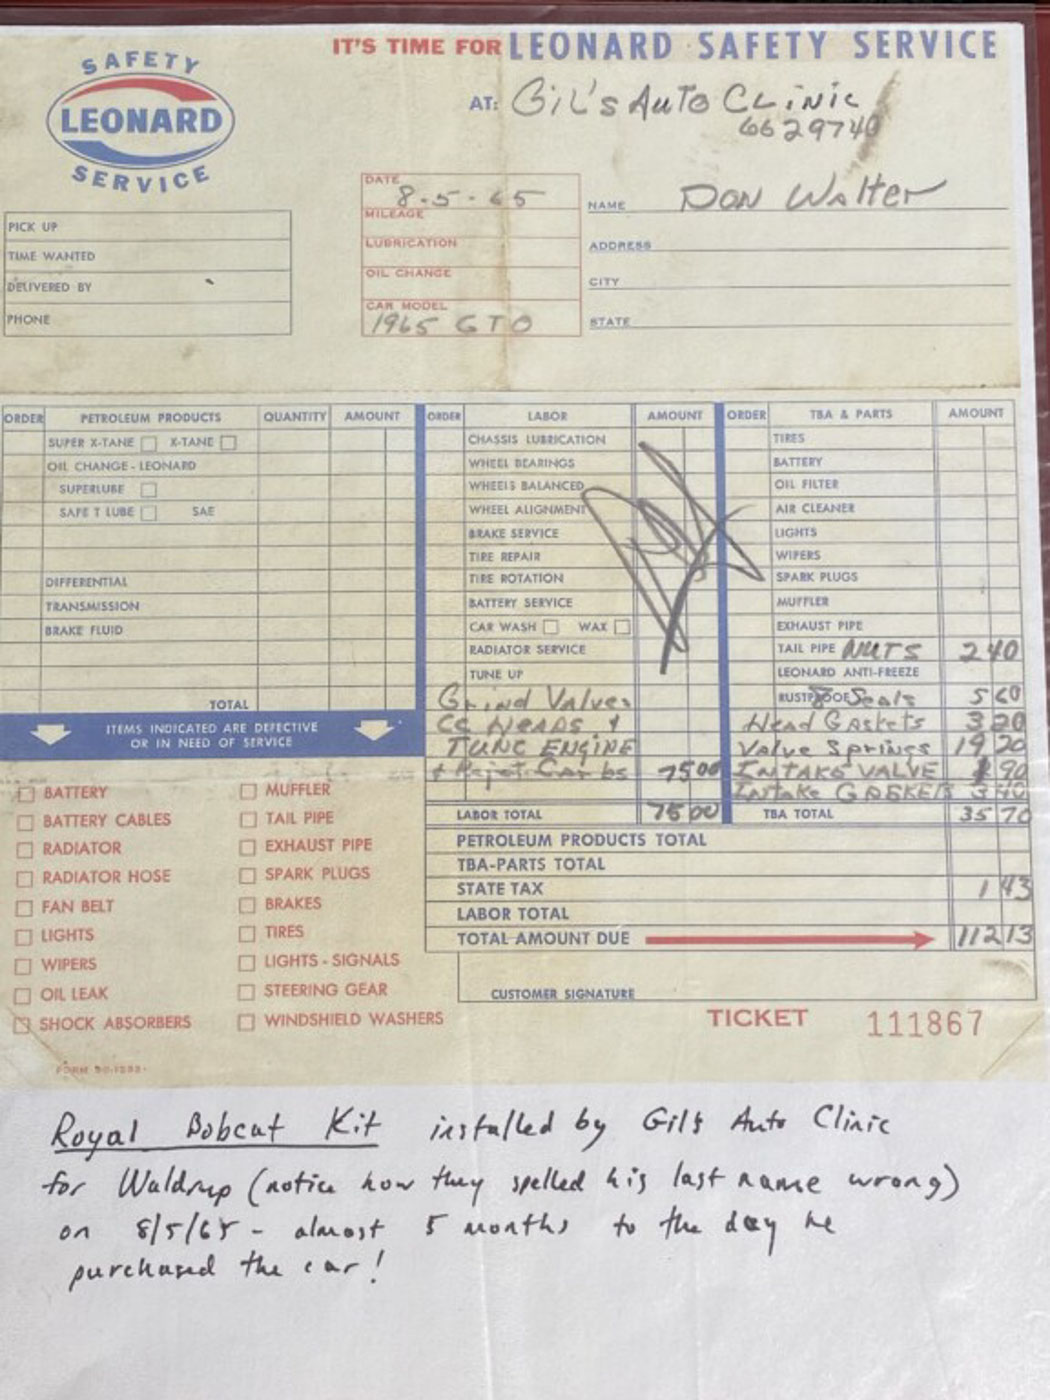 SAFETY
LEONARD
SERVICE
IT'S TIME FOR LEONARD SAFETY SERVICE
AT: GiL's Auto CLiNic
6629740
DATE 8-5-65
MILEAGE
LUBRICATION
OIL CHANGE
CAR MODEL
1965 GTO
NAME DON Walter
ADDRESS
CITY
STATE
PICK UP
TIME WANTED
DELIVERED BY
PHONE
ORDER PETROLEUM PRODUCTS QUANTITY AMOUNT
SUPER X-TANE X-TANE
OIL CHANGE - LEONARD
SUPERLUBE
SAFE T LUBE SAE
DIFFERENTIAL
TRANSMISSION
BRAKE FLUID
TOTAL
ORDER LABOR AMOUNT
CHASSIS LUBRICATION
WHEEL BEARINGS
WHEELS BALANCED
WHEEL ALIGNMENT
BRAKE SERVICE
TIRE REPAIR
TIRE ROTATION
BATTERY SERVICE
CAR WASH WAX
RADIATOR SERVICE
TUNE UP
Grind Valves
CC HEADS +
TUNE ENGINE
+ Rejet Carbs 75 00
LABOR TOTAL 75 00
ORDER TBA & PARTS AMOUNT
TIRES
BATTERY
OIL FILTER
AIR CLEANER
LIGHTS
WIPERS
SPARK PLUGS
MUFFLER
EXHAUST PIPE
TAIL PIPE NUTS 2 40
LEONARD ANTI-FREEZE
RUSTPROOF Seals 5 60
Head Gaskets 3 20
Valve Springs 19 20
INTAKE VALVE 90
Intake GASKETS 3 40
TBA TOTAL 35 70
ITEMS INDICATED ARE DEFECTIVE
OR IN NEED OF SERVICE
BATTERY
BATTERY CABLES
RADIATOR
RADIATOR HOSE
FAN BELT
LIGHTS
WIPERS
OIL LEAK
SHOCK ABSORBERS
MUFFLER
TAIL PIPE
EXHAUST PIPE
SPARK PLUGS
BRAKES
TIRES
LIGHTS - SIGNALS
STEERING GEAR
WINDSHIELD WASHERS
PETROLEUM PRODUCTS TOTAL
TBA-PARTS TOTAL
STATE TAX 1 43
LABOR TOTAL
TOTAL AMOUNT DUE 112 13
CUSTOMER SIGNATURE
TICKET 111867
FORM
Royal Bobcat Kit installed by Gil's Auto Clinic
for Waldrup (notice how they spelled his last name wrong)
on 8/5/65 - almost 5 months to the day he
purchased the car!